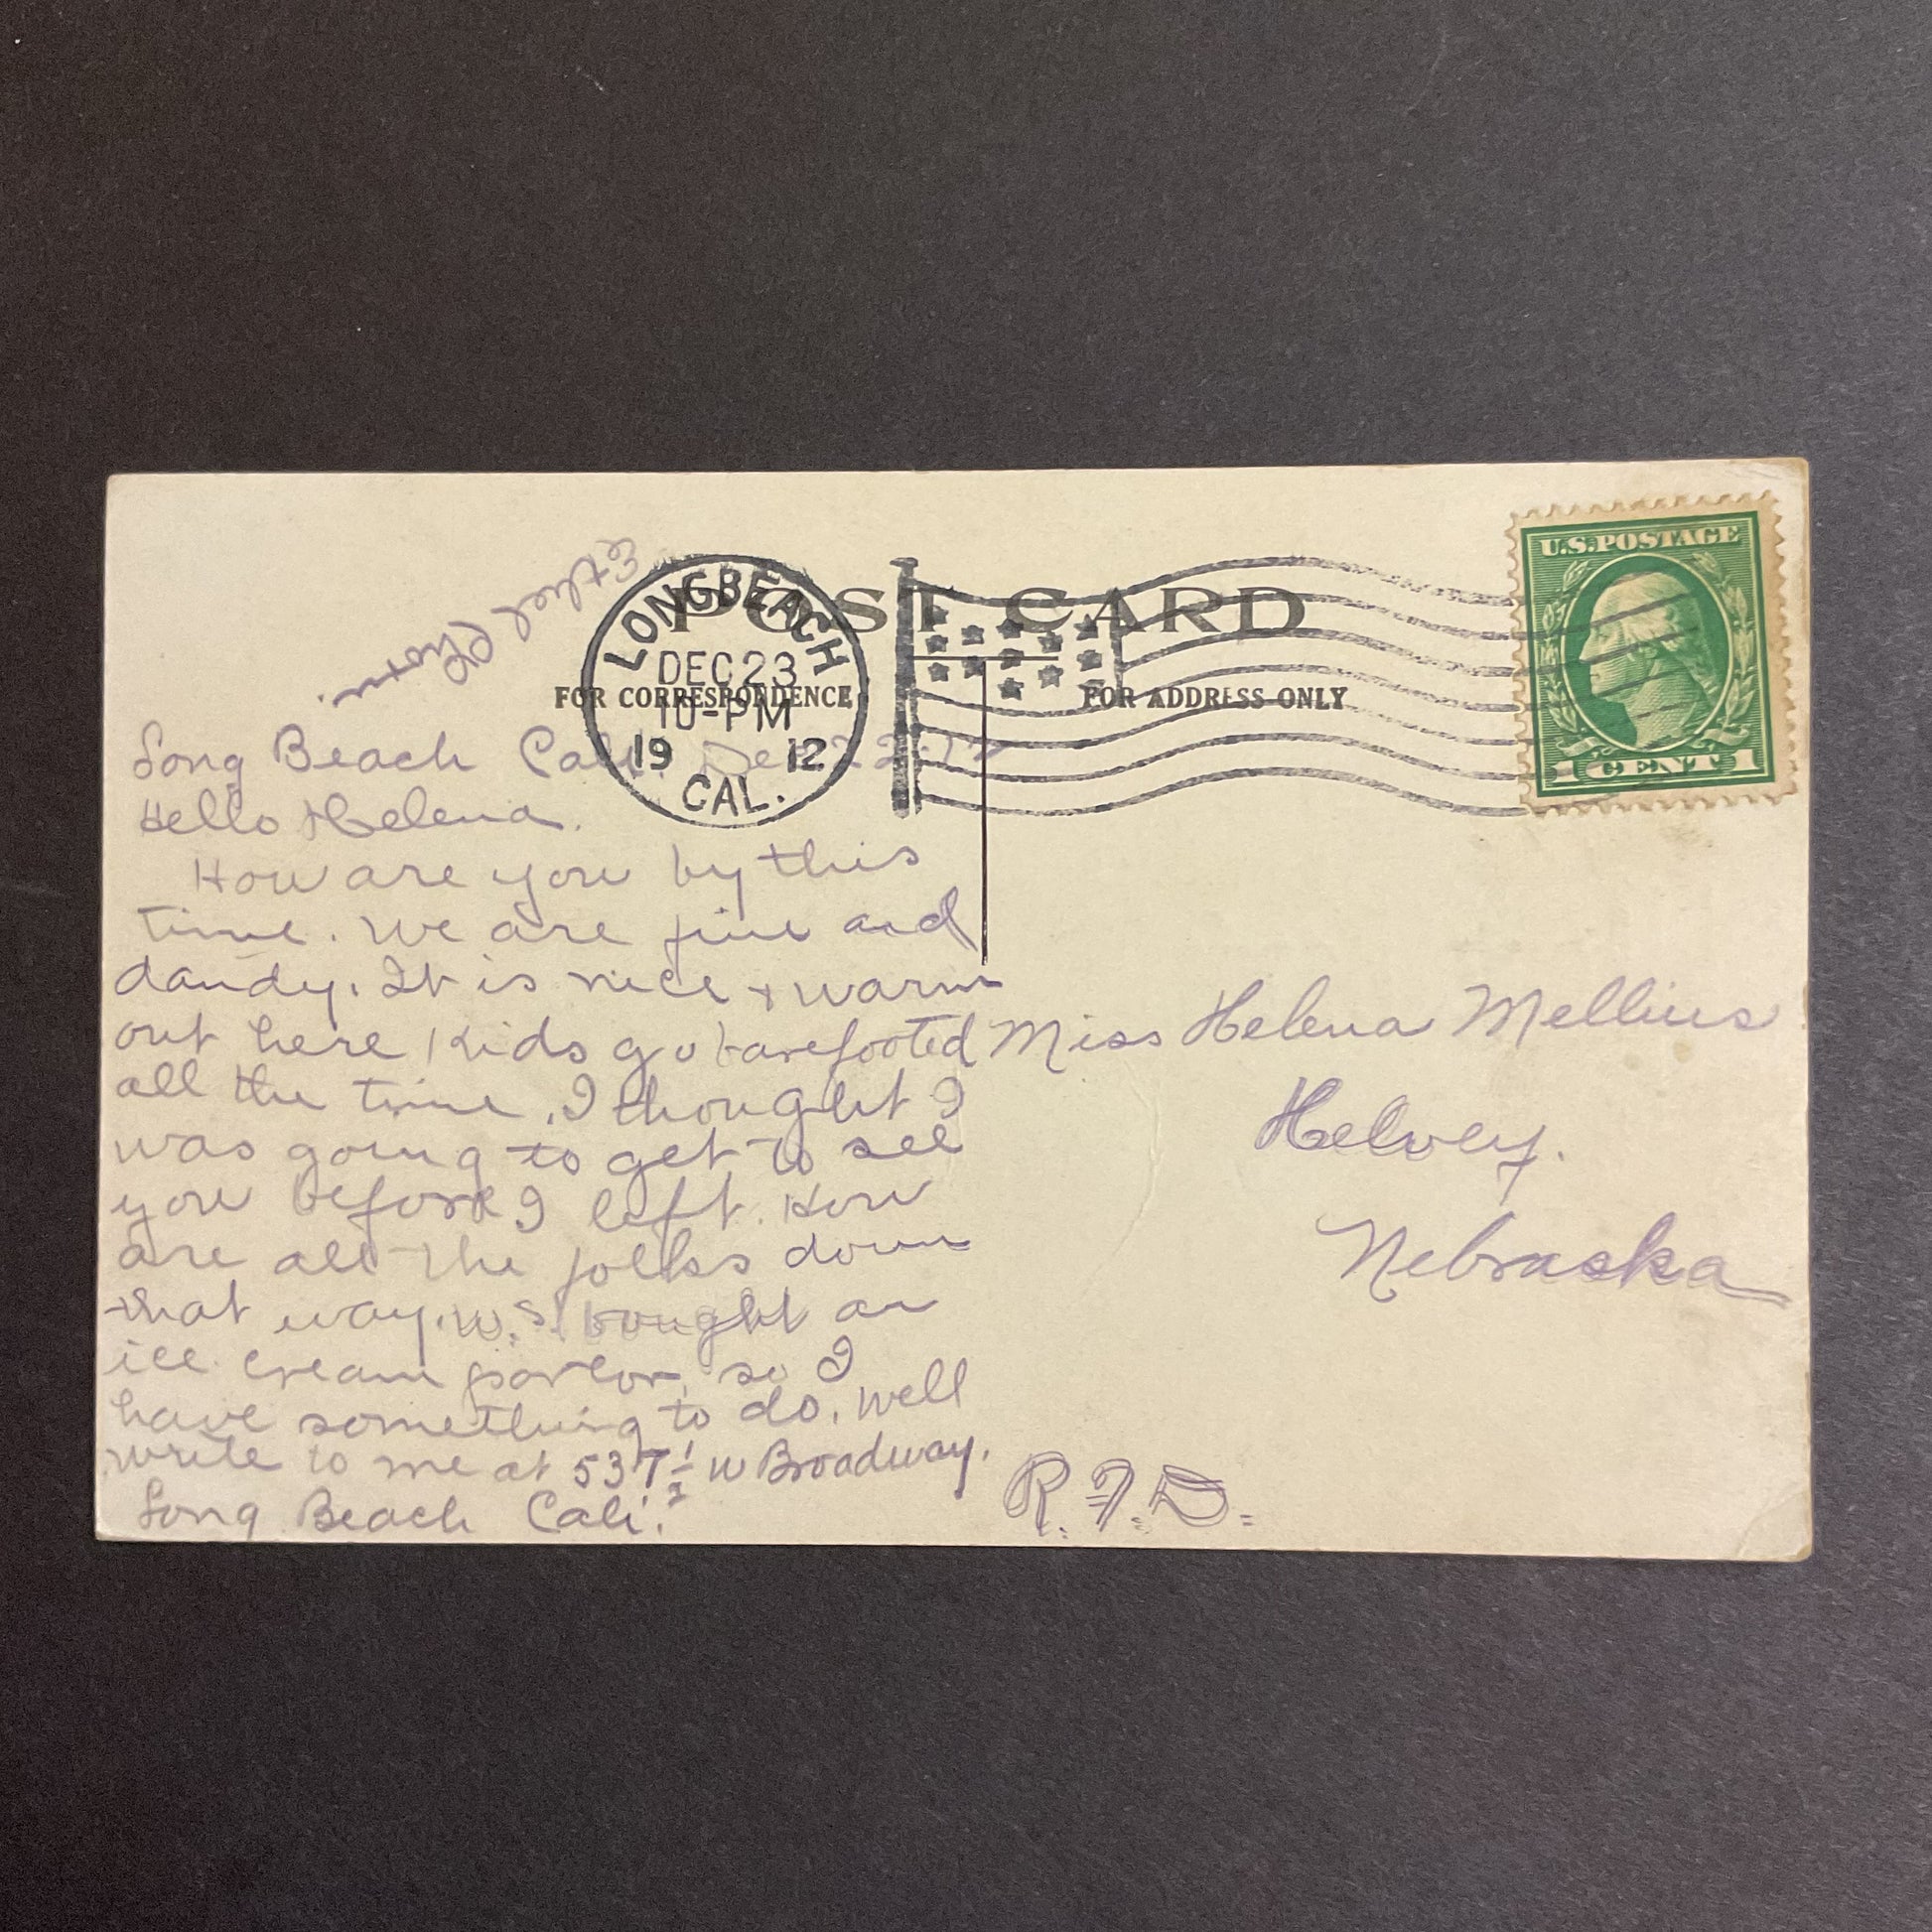 POST CARD
FOR CORRESPONDENCE
FOR ADDRESS ONLY
LONG BEACH
DEC 23
10-PM
19 12
CAL.
U.S. POSTAGE
1 CENT 1
Ethel
Long Beach Cali. Dec 22-12
Hello Helena.
How are you by this
time. We are fine and
dandy. It is nice + warm
out here Kids go barefooted
all the time. I thought I
was going to get to see
you before I left. How
are all the folks down
that way. W.S. bought an
ice cream parlor, so I
have something to do. Well
write to me at 537½ W Broadway.
Long Beach Cali.
Miss Helena Mellius
Helvey.
Nebraska
R.F.D.